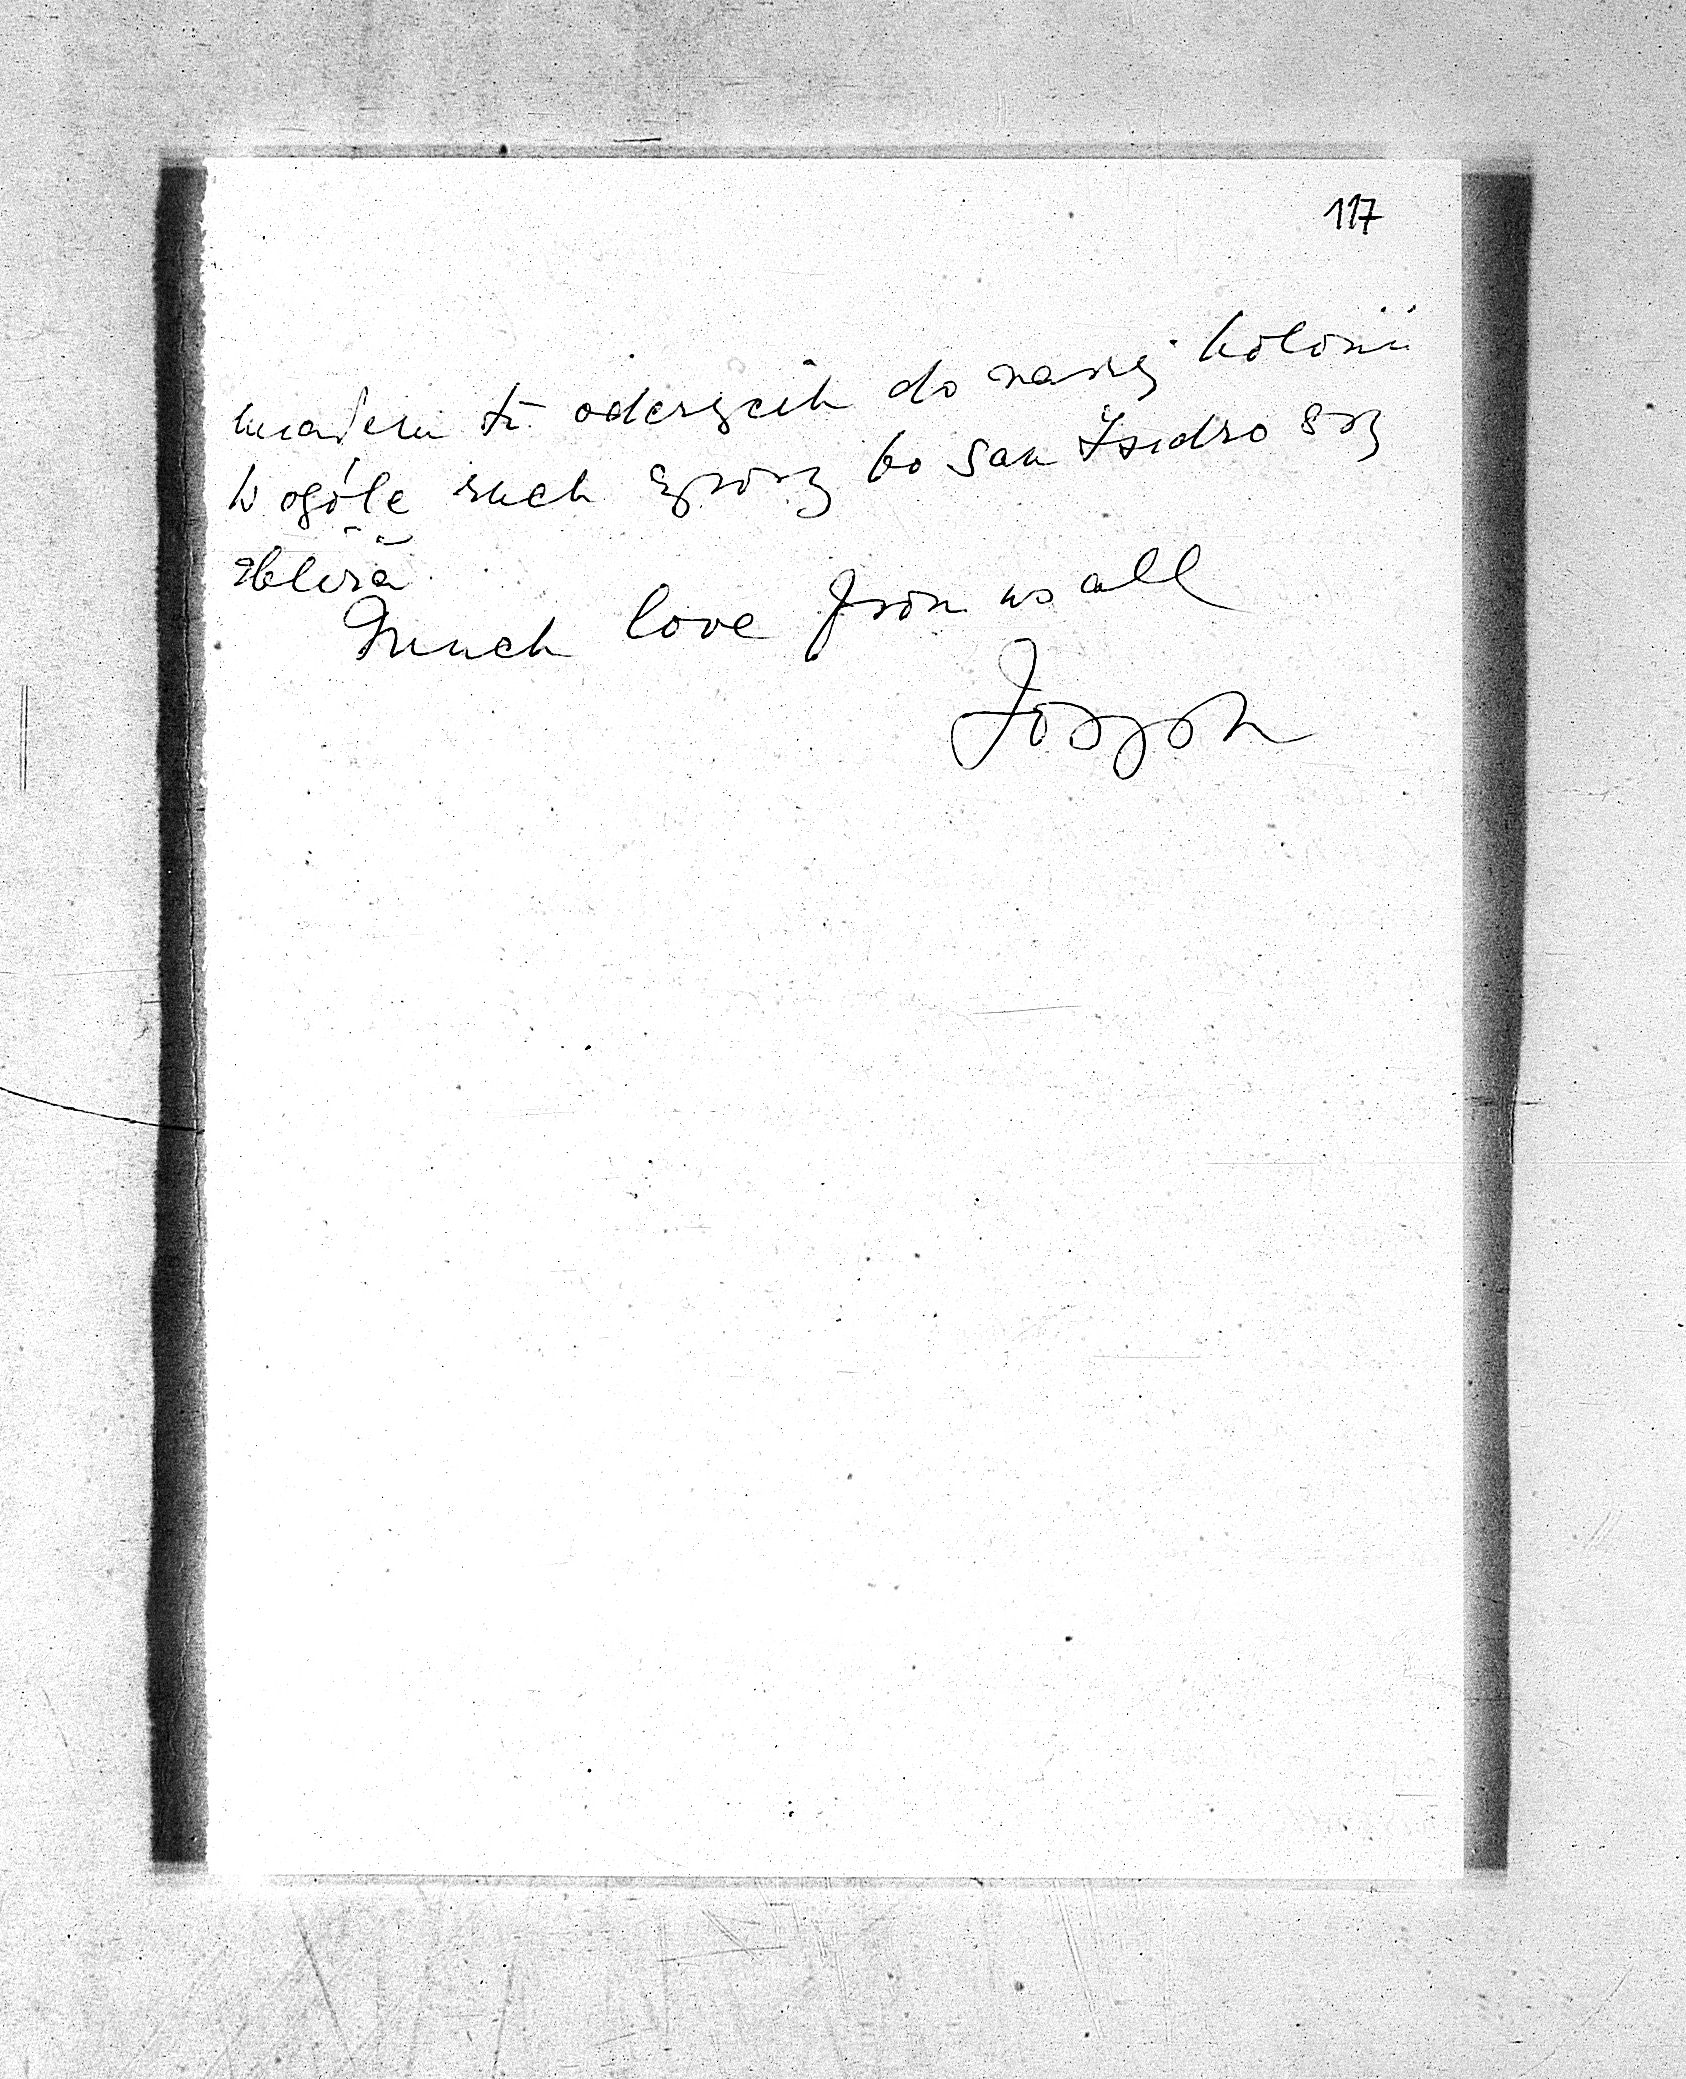 117
miałem tu odczycik do naszej kolonii
W ogóle ruch spory bo San Isidro się
zbliża
Much love from us all
Joseph